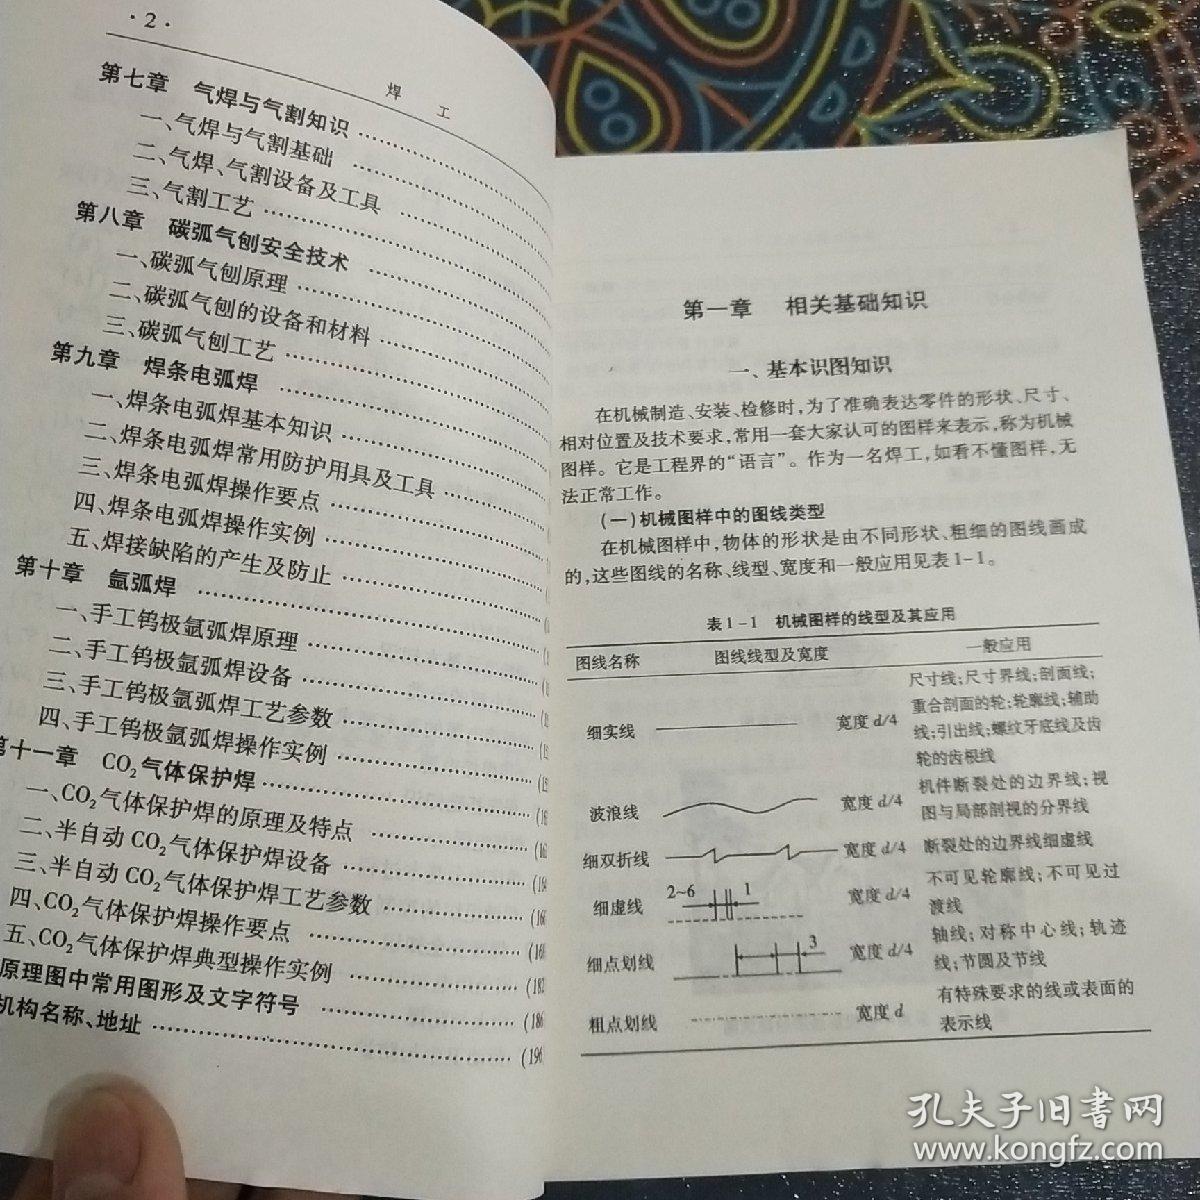 · 2 ·
焊 工
第七章 气焊与气割知识
一、气焊与气割基础
二、气焊、气割设备及工具
三、气割工艺
第八章 碳弧气刨安全技术
一、碳弧气刨原理
二、碳弧气刨的设备和材料
三、碳弧气刨工艺
第九章 焊条电弧焊
一、焊条电弧焊基本知识
二、焊条电弧焊常用防护用具及工具
三、焊条电弧焊操作要点
四、焊条电弧焊操作实例
五、焊接缺陷的产生及防止
第十章 氩弧焊
一、手工钨极氩弧焊原理
二、手工钨极氩弧焊设备
三、手工钨极氩弧焊工艺参数
四、手工钨极氩弧焊操作实例
第十一章 CO₂气体保护焊
一、CO₂气体保护焊的原理及特点
二、半自动CO₂气体保护焊设备
三、半自动CO₂气体保护焊工艺参数
四、CO₂气体保护焊操作要点
五、CO₂气体保护焊典型操作实例
原理图中常用图形及文字符号
机构名称、地址
第一章 相关基础知识
一、基本识图知识
在机械制造、安装、检修时,为了准确表达零件的形状、尺寸、
相对位置及技术要求,常用一套大家认可的图样来表示,称为机械
图样。它是工程界的“语言”。作为一名焊工,如看不懂图样,无
法正常工作。
(一)机械图样中的图线类型
在机械图样中,物体的形状是由不同形状、粗细的图线画成
的,这些图线的名称、线型、宽度和一般应用见表1-1。
表1-1 机械图样的线型及其应用
图线名称 图线线型及宽度 一般应用
细实线 宽度 d/4 尺寸线;尺寸界线;剖面线;
重合剖面的轮;轮廓线;辅助
线;引出线;螺纹牙底线及齿
轮的齿根线
波浪线 宽度 d/4 机件断裂处的边界线;视
图与局部剖视的分界线
细双折线 宽度 d/4 断裂处的边界线细虚线
细虚线 2~6 1 宽度 d/4 不可见轮廓线;不可见过
渡线
细点划线 3 宽度 d/4 轴线;对称中心线;轨迹
线;节圆及节线
粗点划线 宽度 d 有特殊要求的线或表面的
表示线
孔夫子旧书网
www.kongfz.com